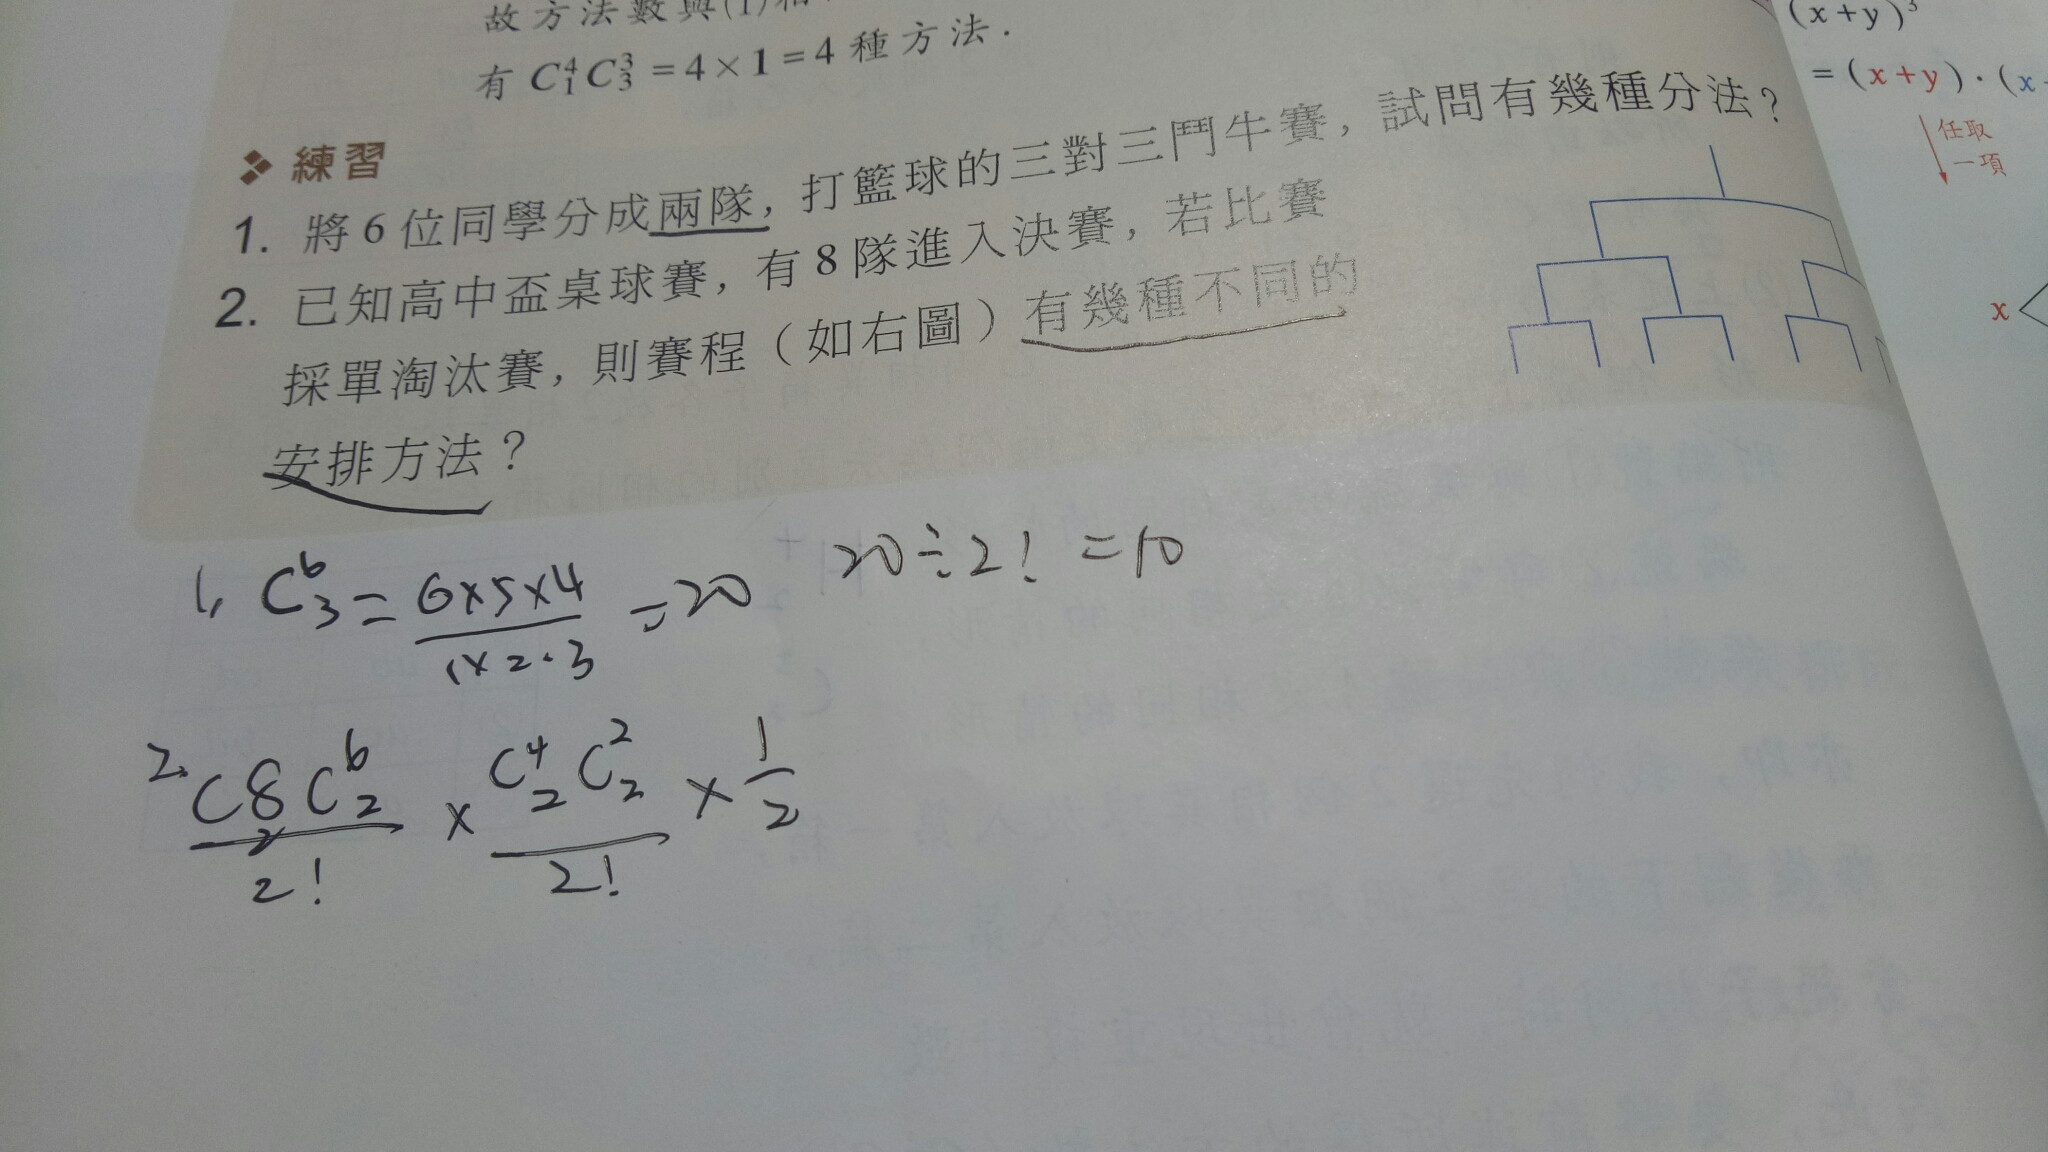 故方法數與(1)相
有 C⁴₁C³₃ = 4 × 1 = 4 種方法．
練習
1. 將 6 位同學分成兩隊，打籃球的三對三鬥牛賽，試問有幾種分法？
2. 已知高中盃桌球賽，有 8 隊進入決賽，若比賽
採單淘汰賽，則賽程（如右圖）有幾種不同的
安排方法？
1, C⁶₃ = (6×5×4)/(1×2·3) = 20 20÷2! = 10
2. (C⁸₂C⁶₂)/2! × (C⁴₂C²₂)/2! × 1/2
(x+y)³
= (x+y)·(x
任取
一項
x